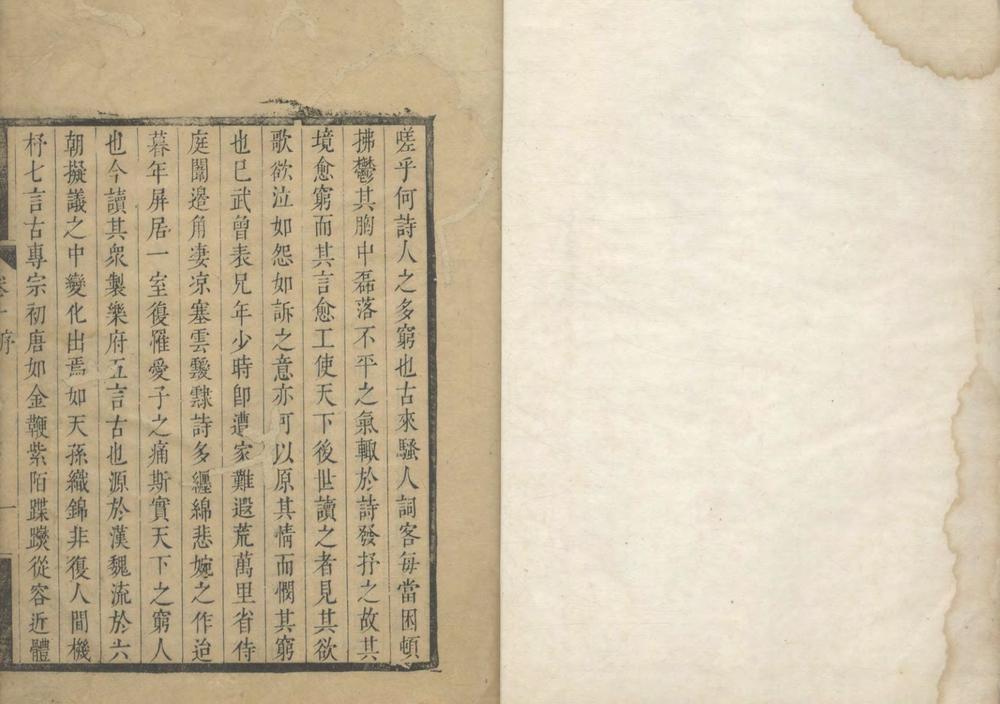 嗟乎何詩人之多窮也古來騷人詞客每當困頓
拂鬱其胸中磊落不平之氣輙於詩發抒之故其
境愈窮而其言愈工使天下後世讀之者見其欲
歌欲泣如怨如訴之意亦可以原其情而憫其窮
也已武曾表兄年少時卽遭家難遐荒萬里省侍
庭闈邉角凄凉塞雲靉靆詩多纏綿悲婉之作迨
暮年屏居一室復罹愛子之痛斯實天下之窮人
也今讀其衆製樂府五言古也源於漢魏流於六
朝擬議之中變化出焉如天孫織錦非復人間機
杼七言古專宗初唐如金鞭紫陌蹀躞從容近體
序
一